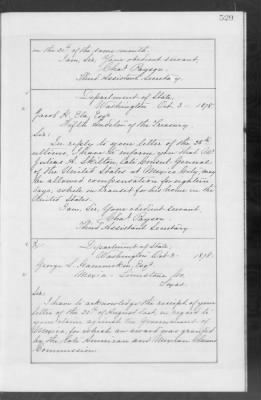 529
on the 20th of the same month.
I am, Sir, Your obedient servant,
Chas Payson,
Third Assistant Secretary.
Department of State,
Washington Oct. 3 - 1878.
Jacob H. Ela, Esqr
Fifth Auditor of the Treasury.
Sir:
In reply to your letter of the 28th
ultimo, I have to inform you that Mr.
Julius A. Skilton, late Consul General
of the United States at Mexico City, may
be allowed compensation for
days, while in transit to his home in the
United States.
I am, Sir, Your obedient servant,
Chas Payson,
Third Assistant Secretary
Department of State,
Washington Oct 3 - 1878.
George L. Esqr
Mexia - Limestone Co.
Texas.
Sir:
I have to acknowledge the receipt of your
letter of the 20th of August last, in regard to
your claim against the Government of
Mexico, for which an award was granted
by the late American and Mexican Claims
Commission.